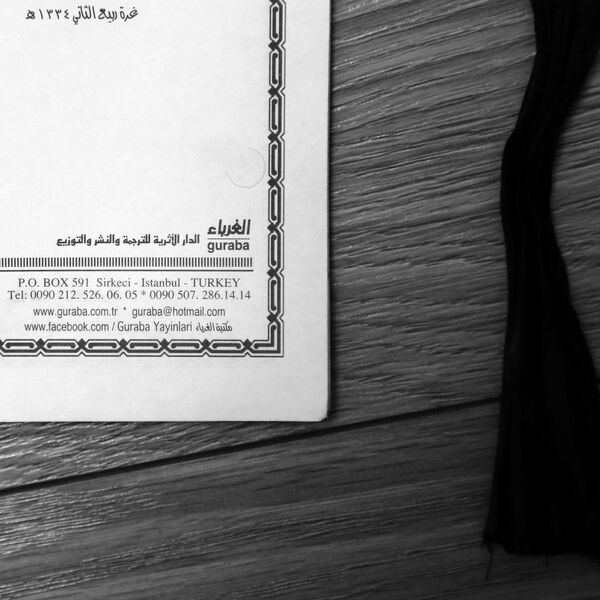 غرة ربيع الثاني ١٣٣٤ هـ
الغرباء
guraba
الدار الأثرية للترجمة والنشر والتوزيع
P.O. BOX 591 Sirkeci - Istanbul - TURKEY
Tel: 0090 212. 526. 06. 05 * 0090 507. 286.14.14
www.guraba.com.tr * guraba@hotmail.com
www.facebook.com / Guraba Yayinlari مكتبة الغرباء